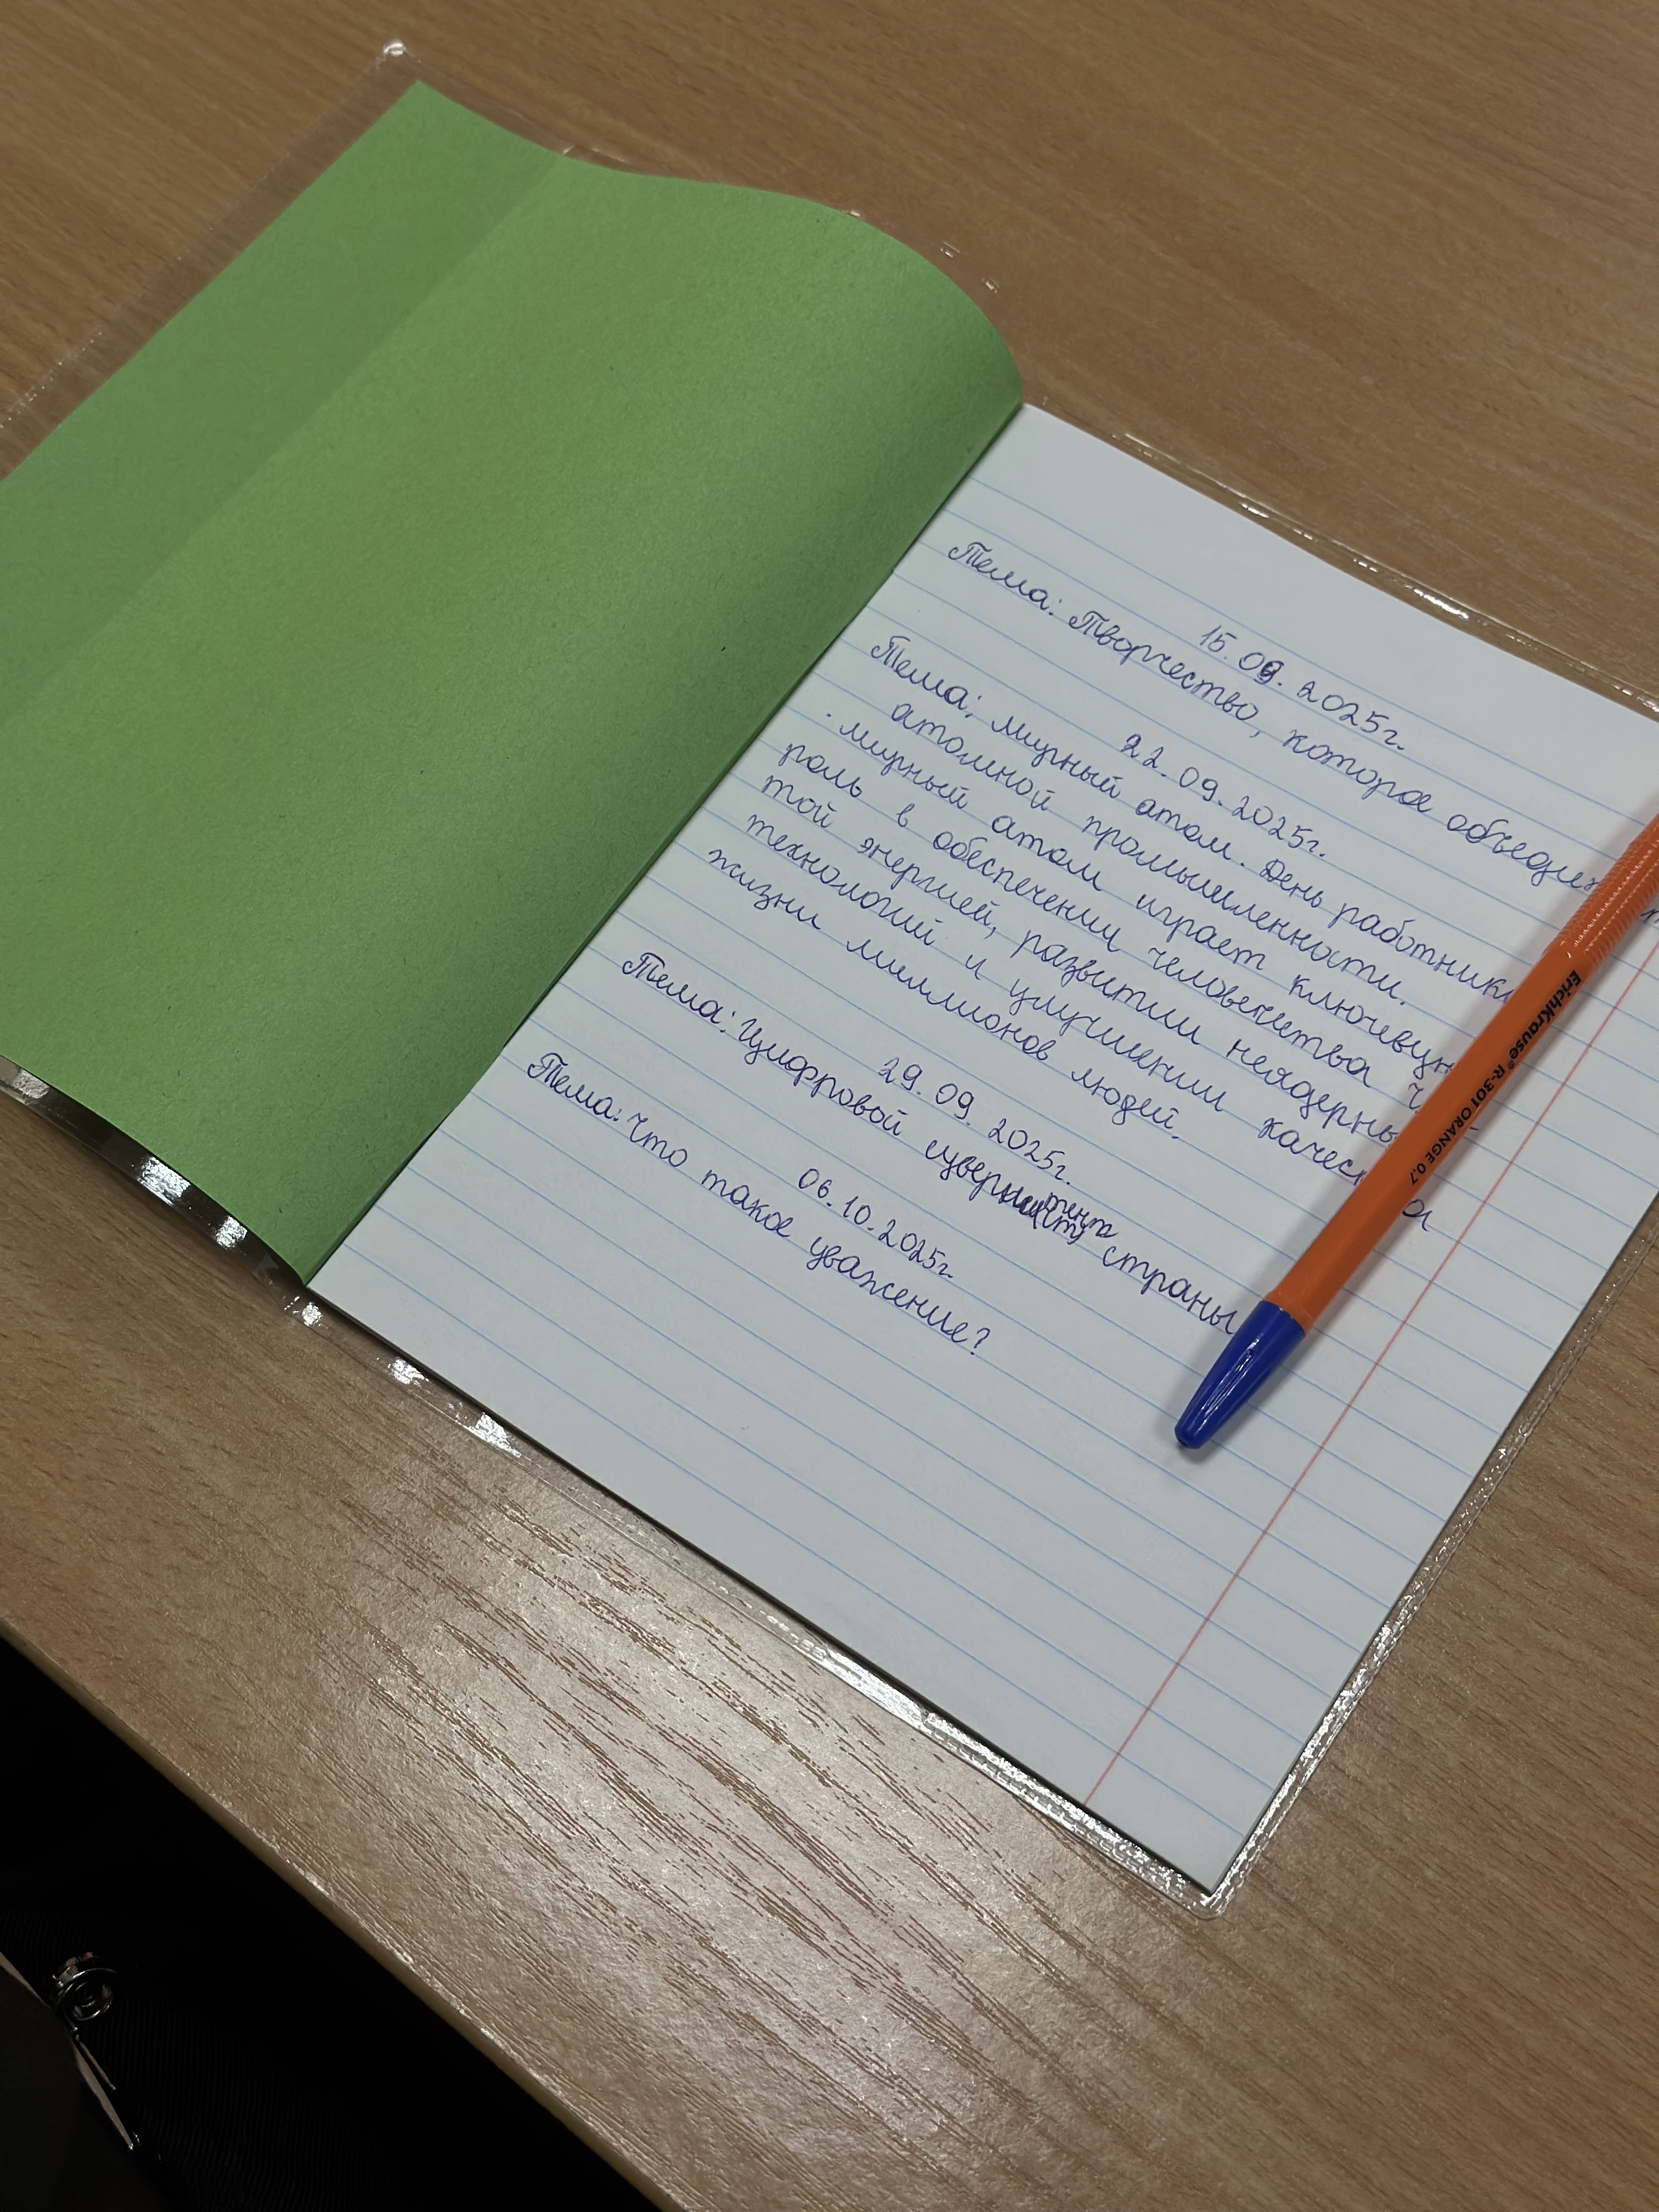 15.09.2025г.
Тема: Творчество, которое объедин
22.09.2025г.
Тема: мирный атом. День работник
атомной промышленности.
мирный атом играет ключевую
роль в обеспечении человечества ч
той энергией, развитии неядерны
технологий и улучшении качес
жизни миллионов людей.
29.09.2025г.
Тема: Цифровой страны
06.10.2025г.
Тема: Что такое уважение?
ErichKrause® R-301 ORANGE 0.7